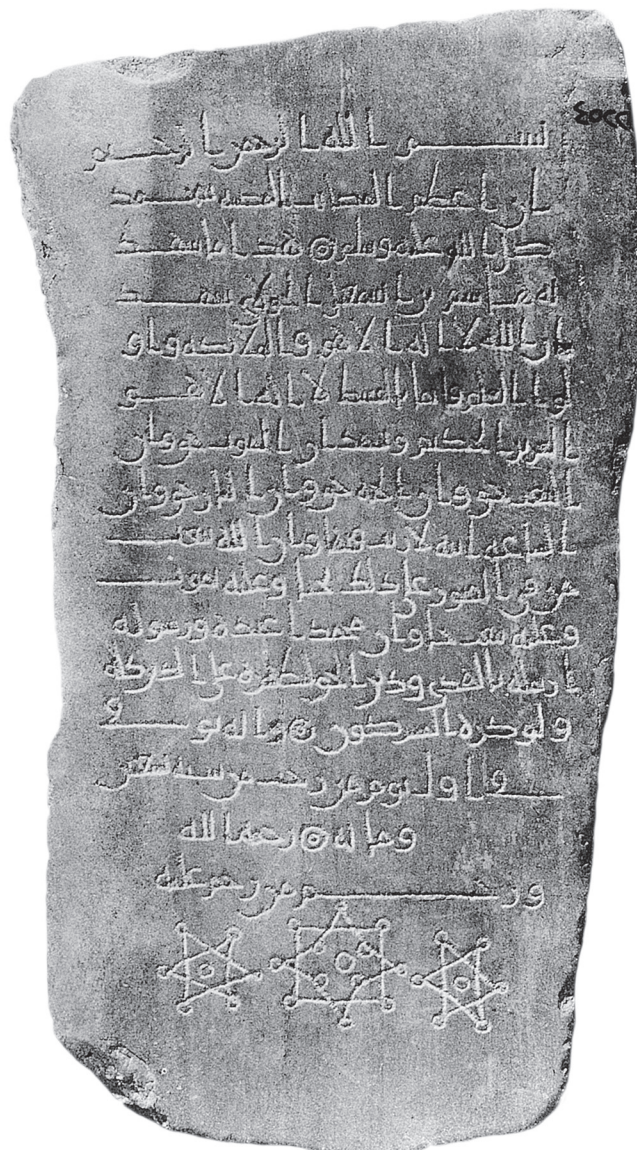 بسم الله الرحمن الرحيم
ان اعظم المصايب المصيبه بمحمد
صلى الله عليه وسلم هذا ما يشهد
به بن اسمعيل يشهد
ان الله لا اله الا هو والملائكه واو
لوا العلم قائما بالقسط لا اله الا هو
العزيز الحكيم ويشهد ان الموت حق وان
البعث حق وان الجنه حق وان النار حق وان
الساعه اتيه لا ريب فيها وان الله يبعث
من في القبور على ذلك يحيا وعليه يموت
وعليه يبعث حيا وان محمدا عبده ورسوله
ارسله بالهدى ودين الحق ليظهره على الدين كله
ولو كره المشركون وانه تو
في اول يوم من رجب من سنه
ومائه رحمه الله
ورحم من ترحم عليه